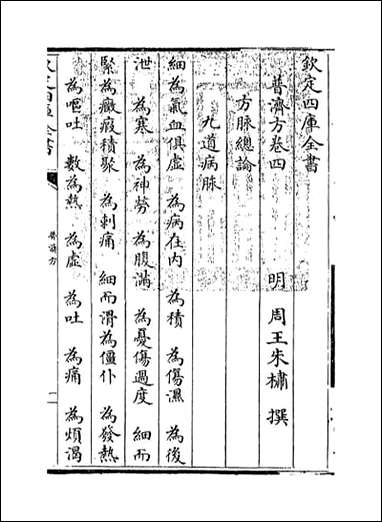 欽定四庫全書
普濟方卷四
明 周王朱橚 撰
方脉總論
九道病脉
細為氣血俱虛 為病在内 為積 為傷濕 為後
泄 為寒 為神勞 為腹滿 為憂傷過度 細而
緊為癥瘕積聚 為刺痛 細而滑為僵仆 為發熱
為嘔吐 數為熱 為虛 為吐 為痛 為煩渴
欽定四庫全書
普濟方
一